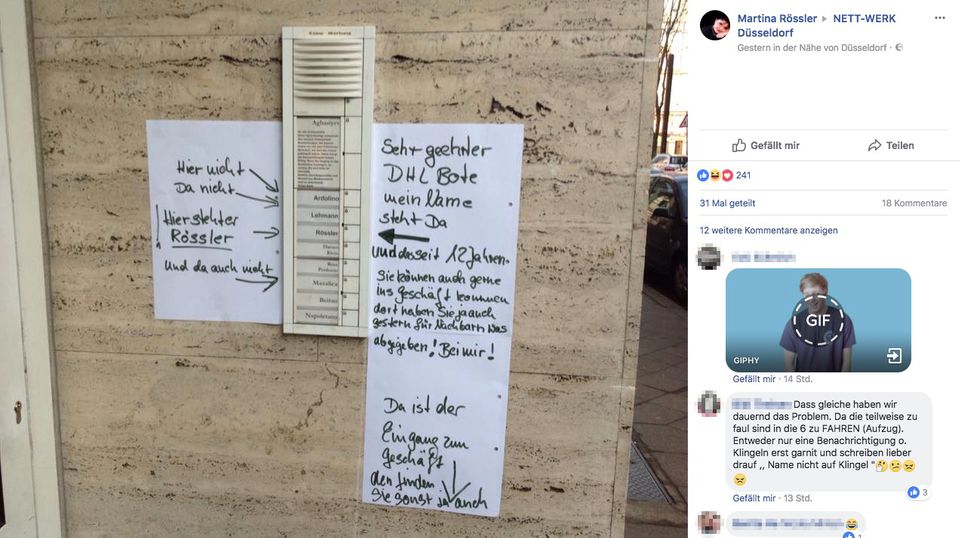 Keine Werbung
Ardolino
Lehmann
Rössler
Napoletano
Hier nicht
Da nicht
Hier steht er
Rössler
Und da auch nicht
Sehr geehrter
DHL Bote
mein Name
steht Da
und das seit 12 Jahren.
Sie können auch gerne
ins Geschäft kommen
dort haben Sie ja auch
gestern für Nachbarn was
abgegeben! Bei mir!
Da ist der
Eingang zum
Geschäft
den finden
Sie sonst ja auch
Martina Rössler ▸ NETT-WERK
Düsseldorf
Gestern in der Nähe von Düsseldorf ·
Gefällt mir
Teilen
241
31 Mal geteilt
18 Kommentare
12 weitere Kommentare anzeigen
GIF
GIPHY
Gefällt mir · 14 Std.
Dass gleiche haben wir
dauernd das Problem. Da die teilweise zu
faul sind in die 6 zu FAHREN (Aufzug).
Entweder nur eine Benachrichtigung o.
Klingeln erst garnit und schreiben lieber
drauf ,, Name nicht auf Klingel "🤔😕😠
😠
3
Gefällt mir · 13 Std.
😂
1